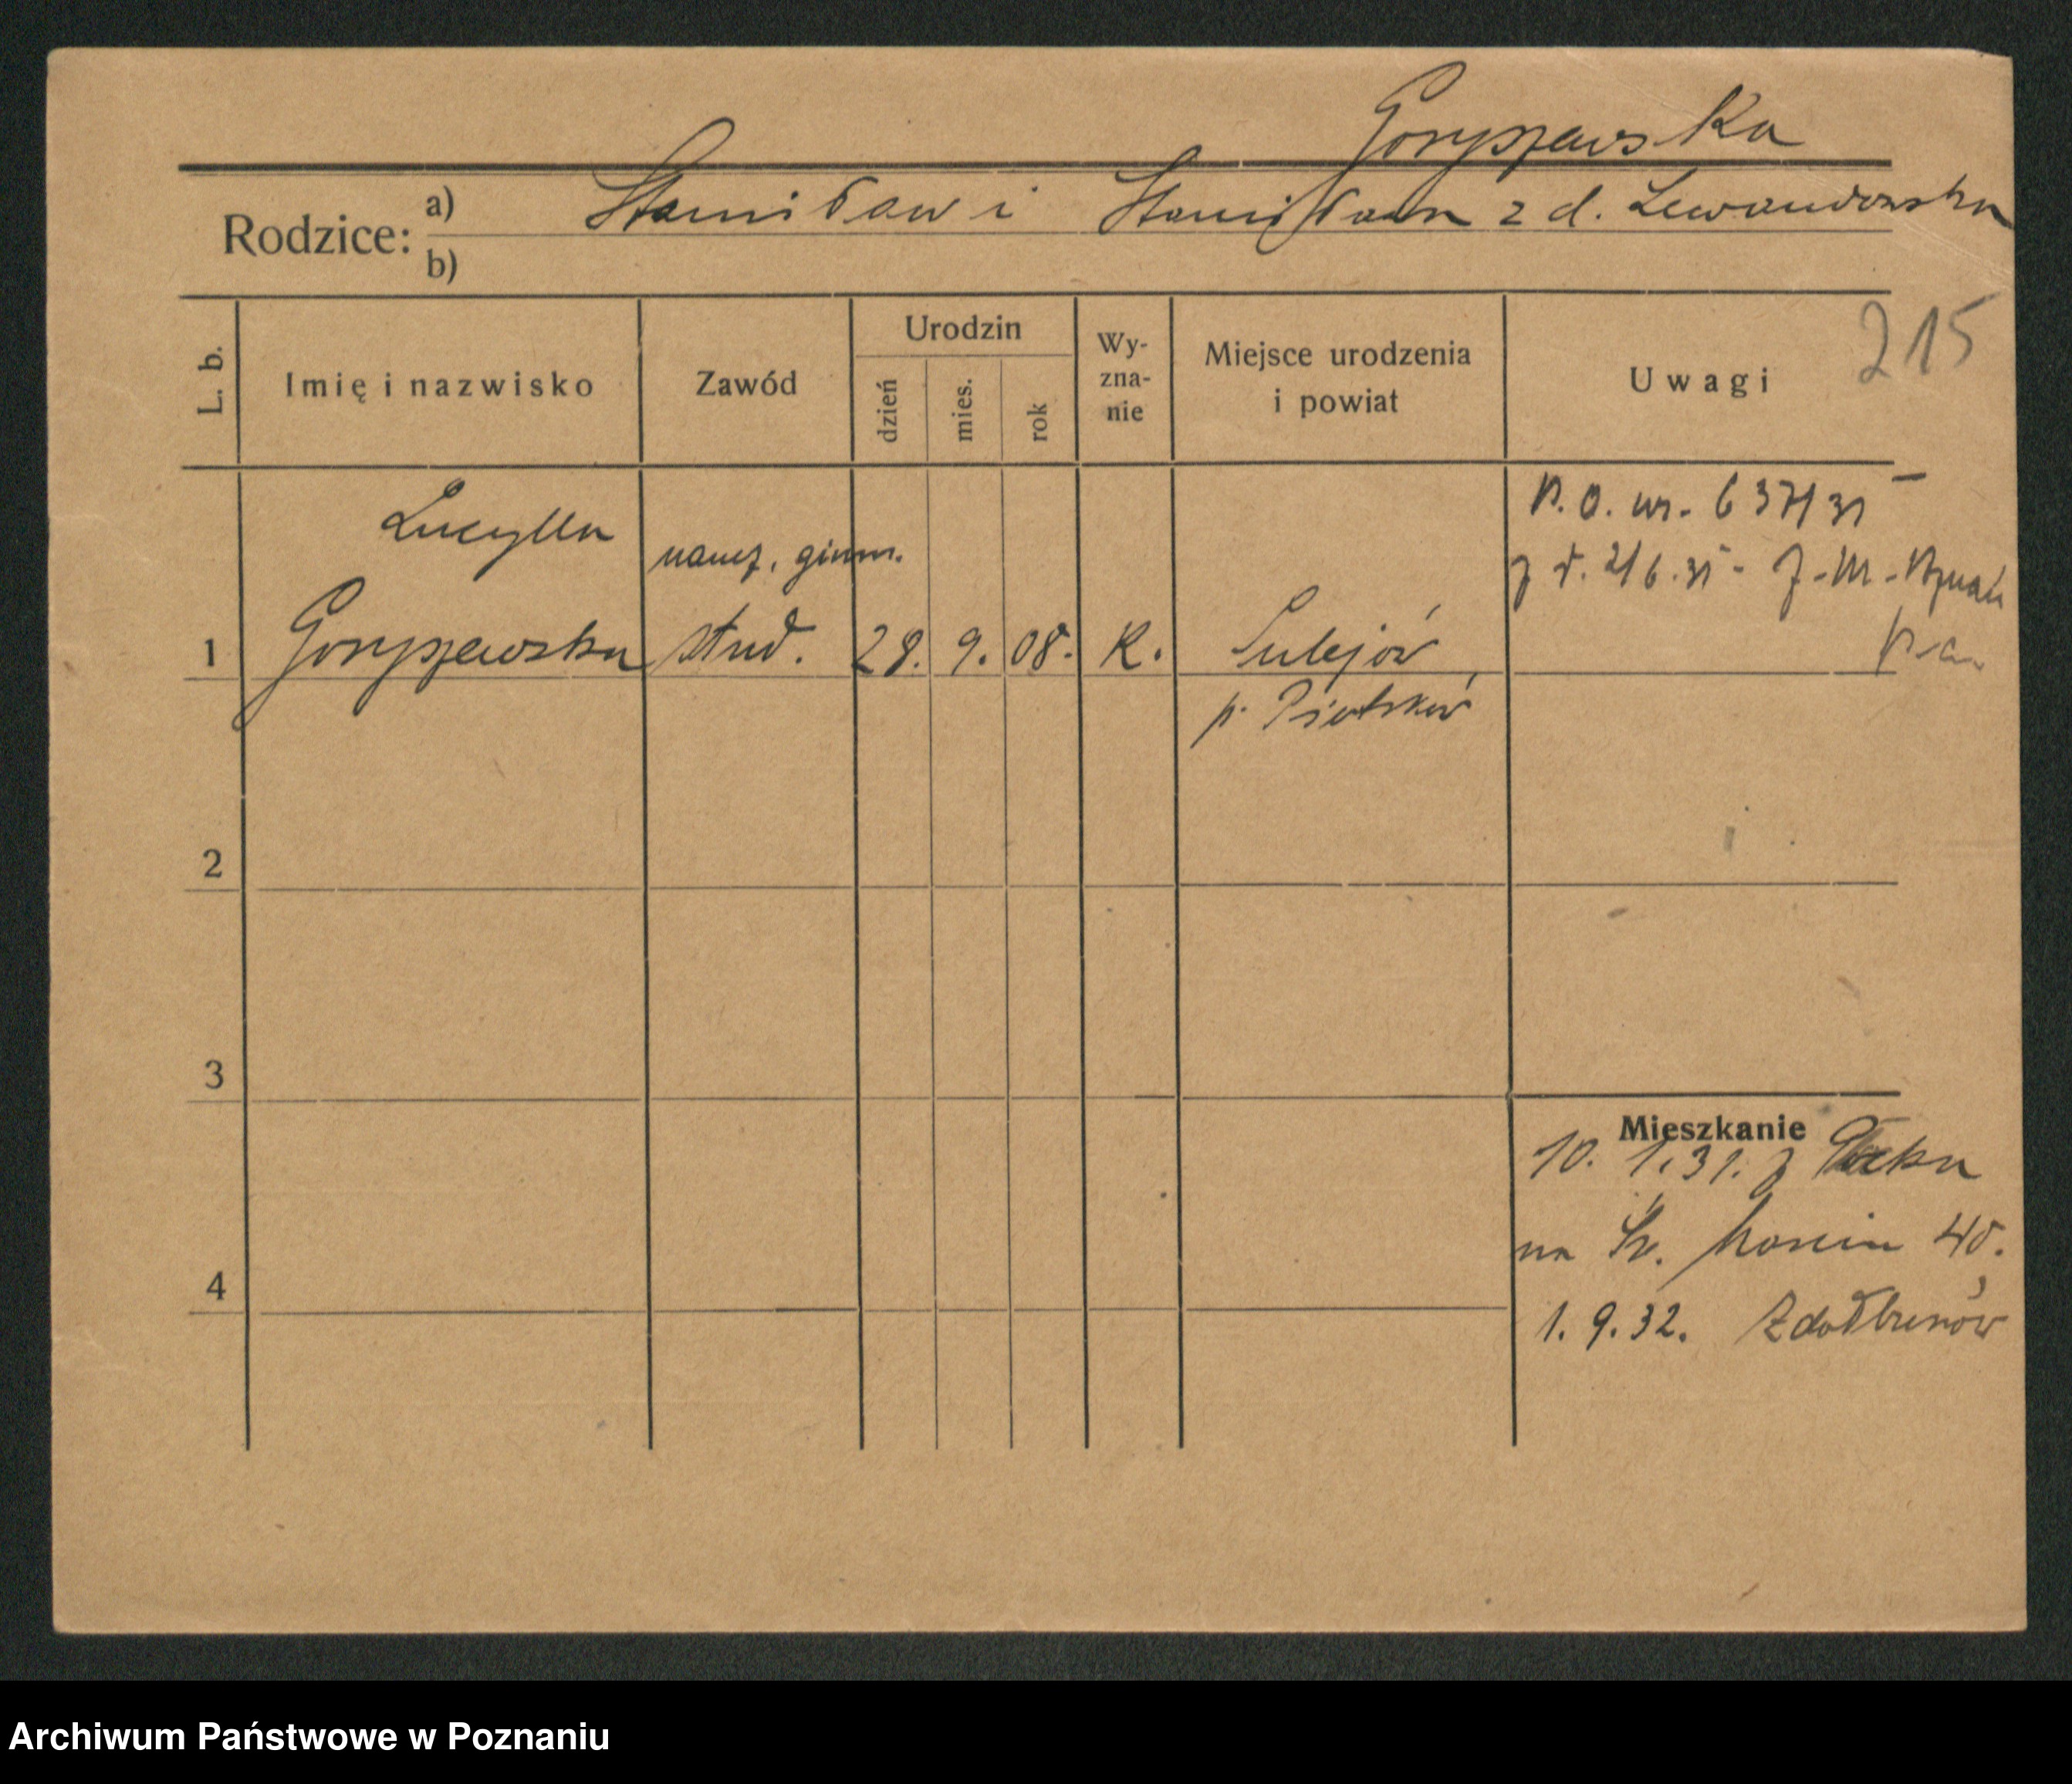 Goryszewska
Rodzice: a) Stanisław i Stanisława z d. Lewandowska
b)
215
L. b. Imię i nazwisko Zawód Urodzin dzień mies. rok Wy-zna-nie Miejsce urodzenia i powiat Uwagi
P. O. nr. 637/31
Lucylla naucz. gimn. z d. 2/6.31 - Z. M. Poznań
1 Goryszewska stud. 28. 9. 08. K. Sulejów
p. Piotrków
2
3
Mieszkanie
10. 1. 31. z
na Św. Marcin 40.
4
1. 9. 32. Zdołbunów
Archiwum Państwowe w Poznaniu